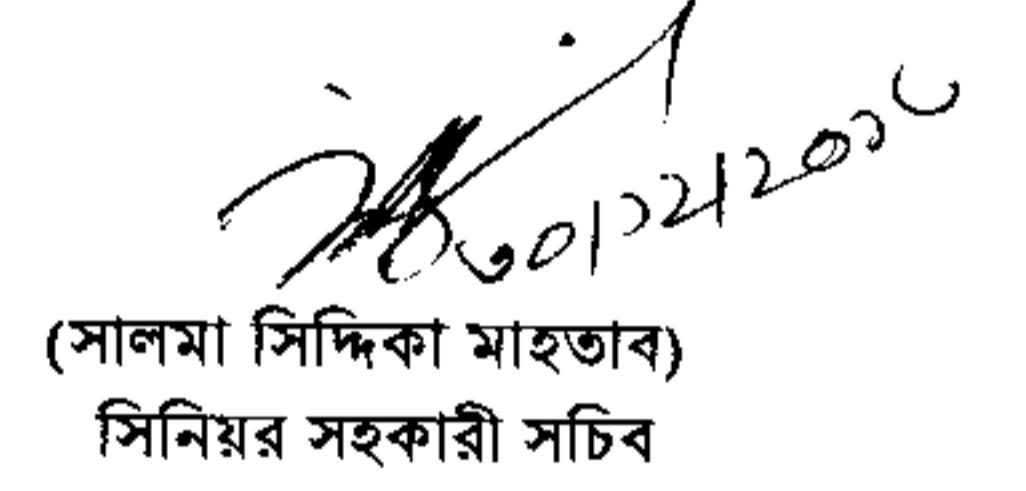 ৩০/১২/২০১৮
(সালমা সিদ্দিকা মাহতাব)
সিনিয়র সহকারী সচিব